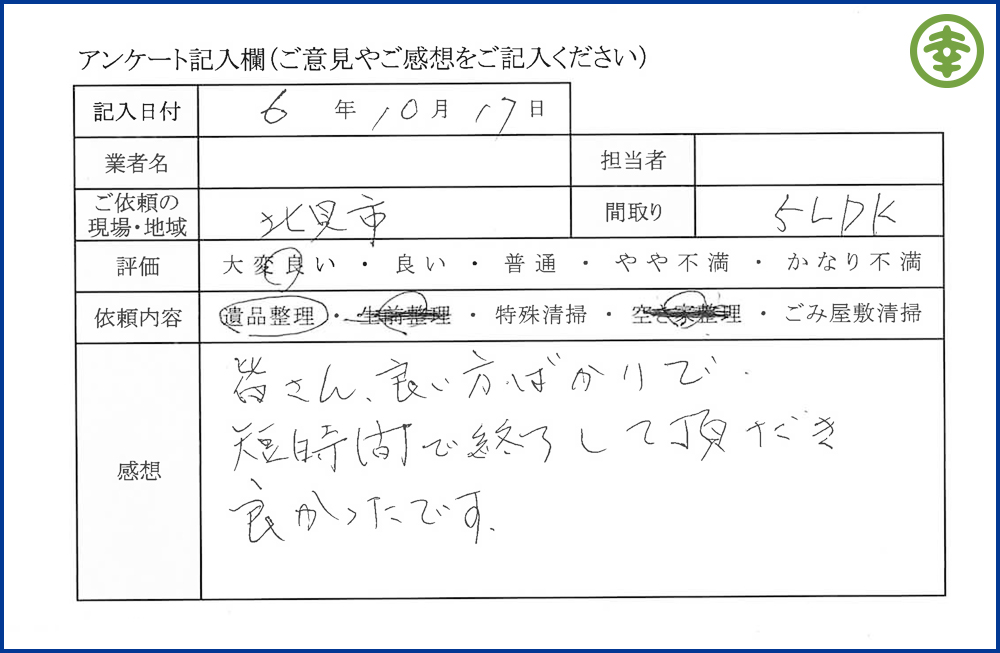 幸
アンケート記入欄（ご意見やご感想をご記入ください）
記入日付 6年10月17日
業者名 担当者
ご依頼の現場・地域 北見市 間取り 5LDK
評価 大変良い・良い・普通・やや不満・かなり不満
依頼内容 遺品整理・生前整理・特殊清掃・空き家整理・ごみ屋敷清掃
感想
皆さん、良い方ばかりで、
短時間で終了して頂だき
良かったです。